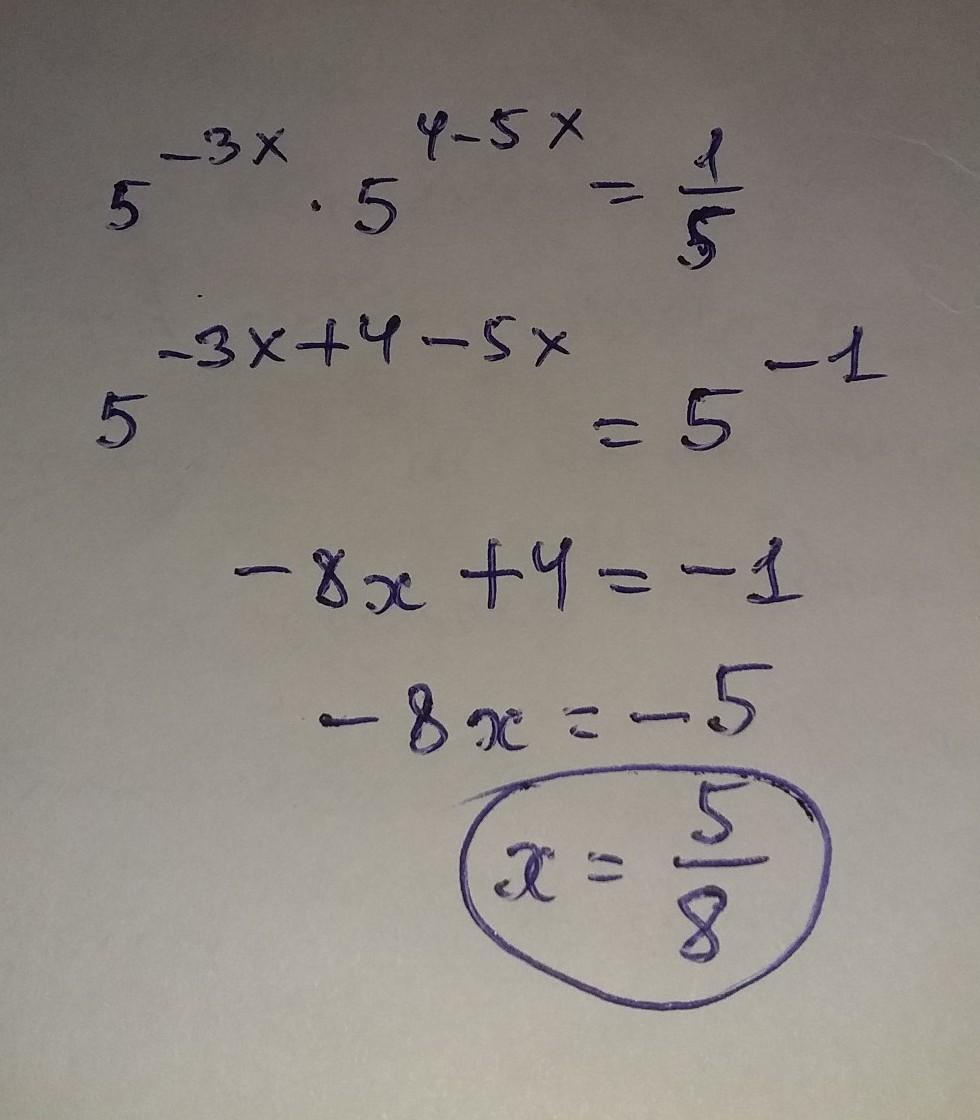 5^{-3x} · 5^{4-5x} = \frac{1}{5}
5^{-3x+4-5x} = 5^{-1}
-8x + 4 = -1
-8x = -5
x = \frac{5}{8}